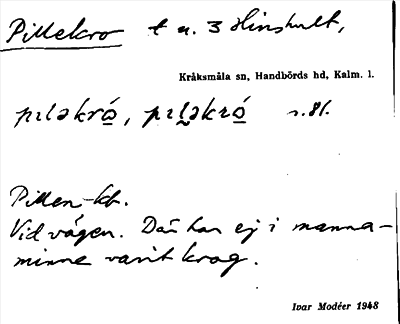 Pillekro t u. 3 Hinshult,
Kråksmåla sn, Handbörds hd, Kalm. l.
pıləkró, pıləkró s. 81.
Pillen-kb.
Vid vägen. Där har ej i manna-
minne varit krog.
Ivar Modéer 1948